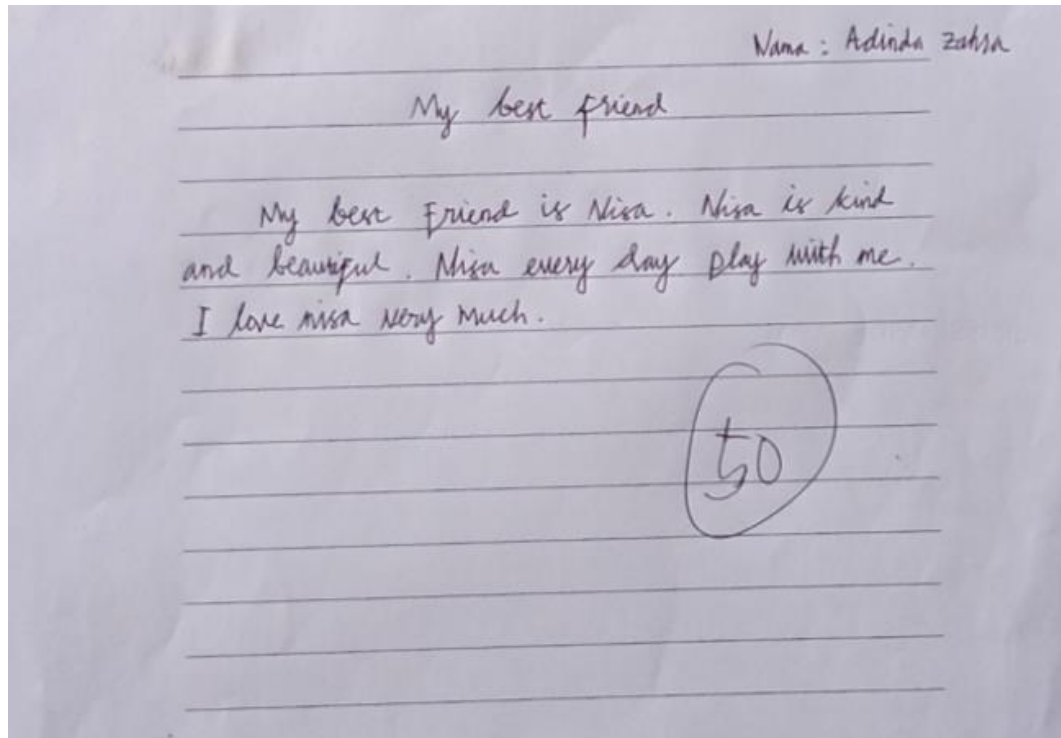 Nama : Adinda Zahra
My best friend
My best Friend is Nisa. Nisa is kind
and beautiful. Nisa every day play with me.
I love nisa very much.
50